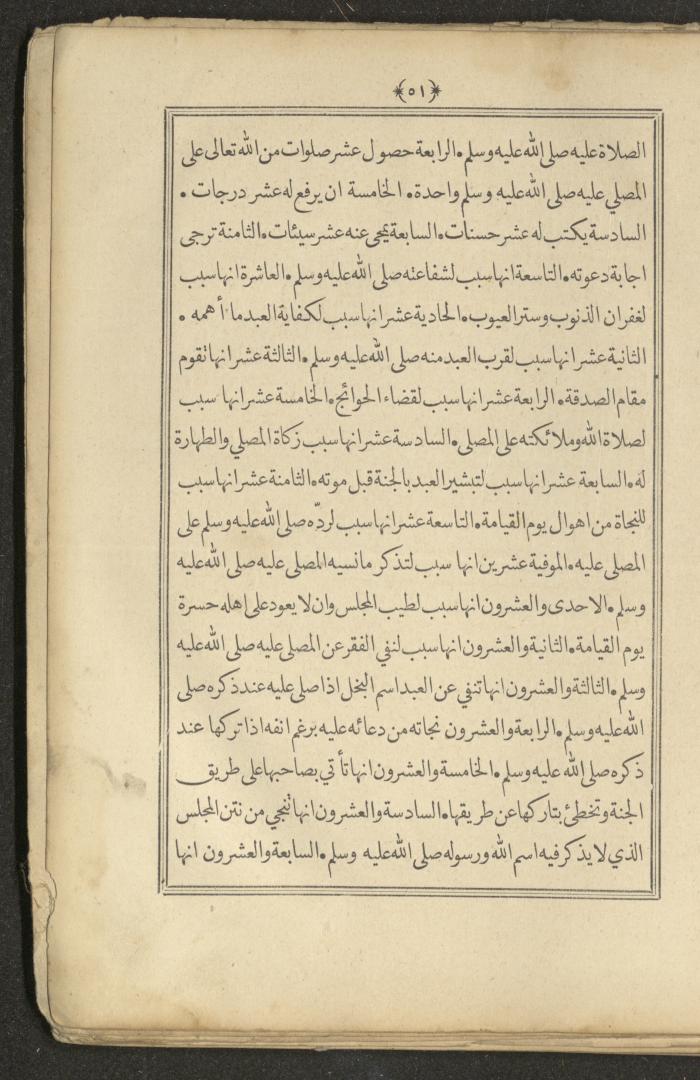 ٥١
الصلاة عليه صلى الله عليه وسلم • الرابعة حصول عشر صلوات من الله تعالى على
المصلي عليه صلى الله عليه وسلم واحدة • الخامسة ان يرفع له عشر درجات •
السادسة يكتب له عشر حسنات • السابعة يمحى عنه عشر سيئات • الثامنة ترجى
اجابة دعوته • التاسعة انها سبب لشفاعته صلى الله عليه وسلم • العاشرة انها سبب
لغفران الذنوب وستر العيوب • الحادية عشر انها سبب لكفاية العبد ما أهمه •
الثانية عشر انها سبب لقرب العبد منه صلى الله عليه وسلم • الثالثة عشر انها تقوم
مقام الصدقة • الرابعة عشر انها سبب لقضاء الحوائج • الخامسة عشر انها سبب
لصلاة الله وملائكته على المصلى • السادسة عشر انها سبب زكاة المصلي والطهارة
له • السابعة عشر انها سبب لتبشير العبد بالجنة قبل موته • الثامنة عشر انها سبب
للنجاة من اهوال يوم القيامة • التاسعة عشر انها سبب لردّه صلى الله عليه وسلم على
المصلى عليه • الموفية عشرين انها سبب لتذكر مانسيه المصلى عليه صلى الله عليه
وسلم • الاحدى والعشرون انها سبب لطيب المجلس وان لا يعود على اهله حسرة
يوم القيامة • الثانية والعشرون انها سبب لنفي الفقر عن المصلى عليه صلى الله عليه
وسلم • الثالثة والعشرون انها تنفي عن العبد اسم البخل اذا صلى عليه عند ذكره صلى
الله عليه وسلم • الرابعة والعشرون نجاته من دعائه عليه برغم انفه اذا تركها عند
ذكره صلى الله عليه وسلم • الخامسة والعشرون انها تأتي بصاحبها على طريق
الجنة وتخطئ بتاركها عن طريقها • السادسة والعشرون انها تنجي من نتن المجلس
الذي لا يذكر فيه اسم الله ورسوله صلى الله عليه وسلم • السابعة والعشرون انها